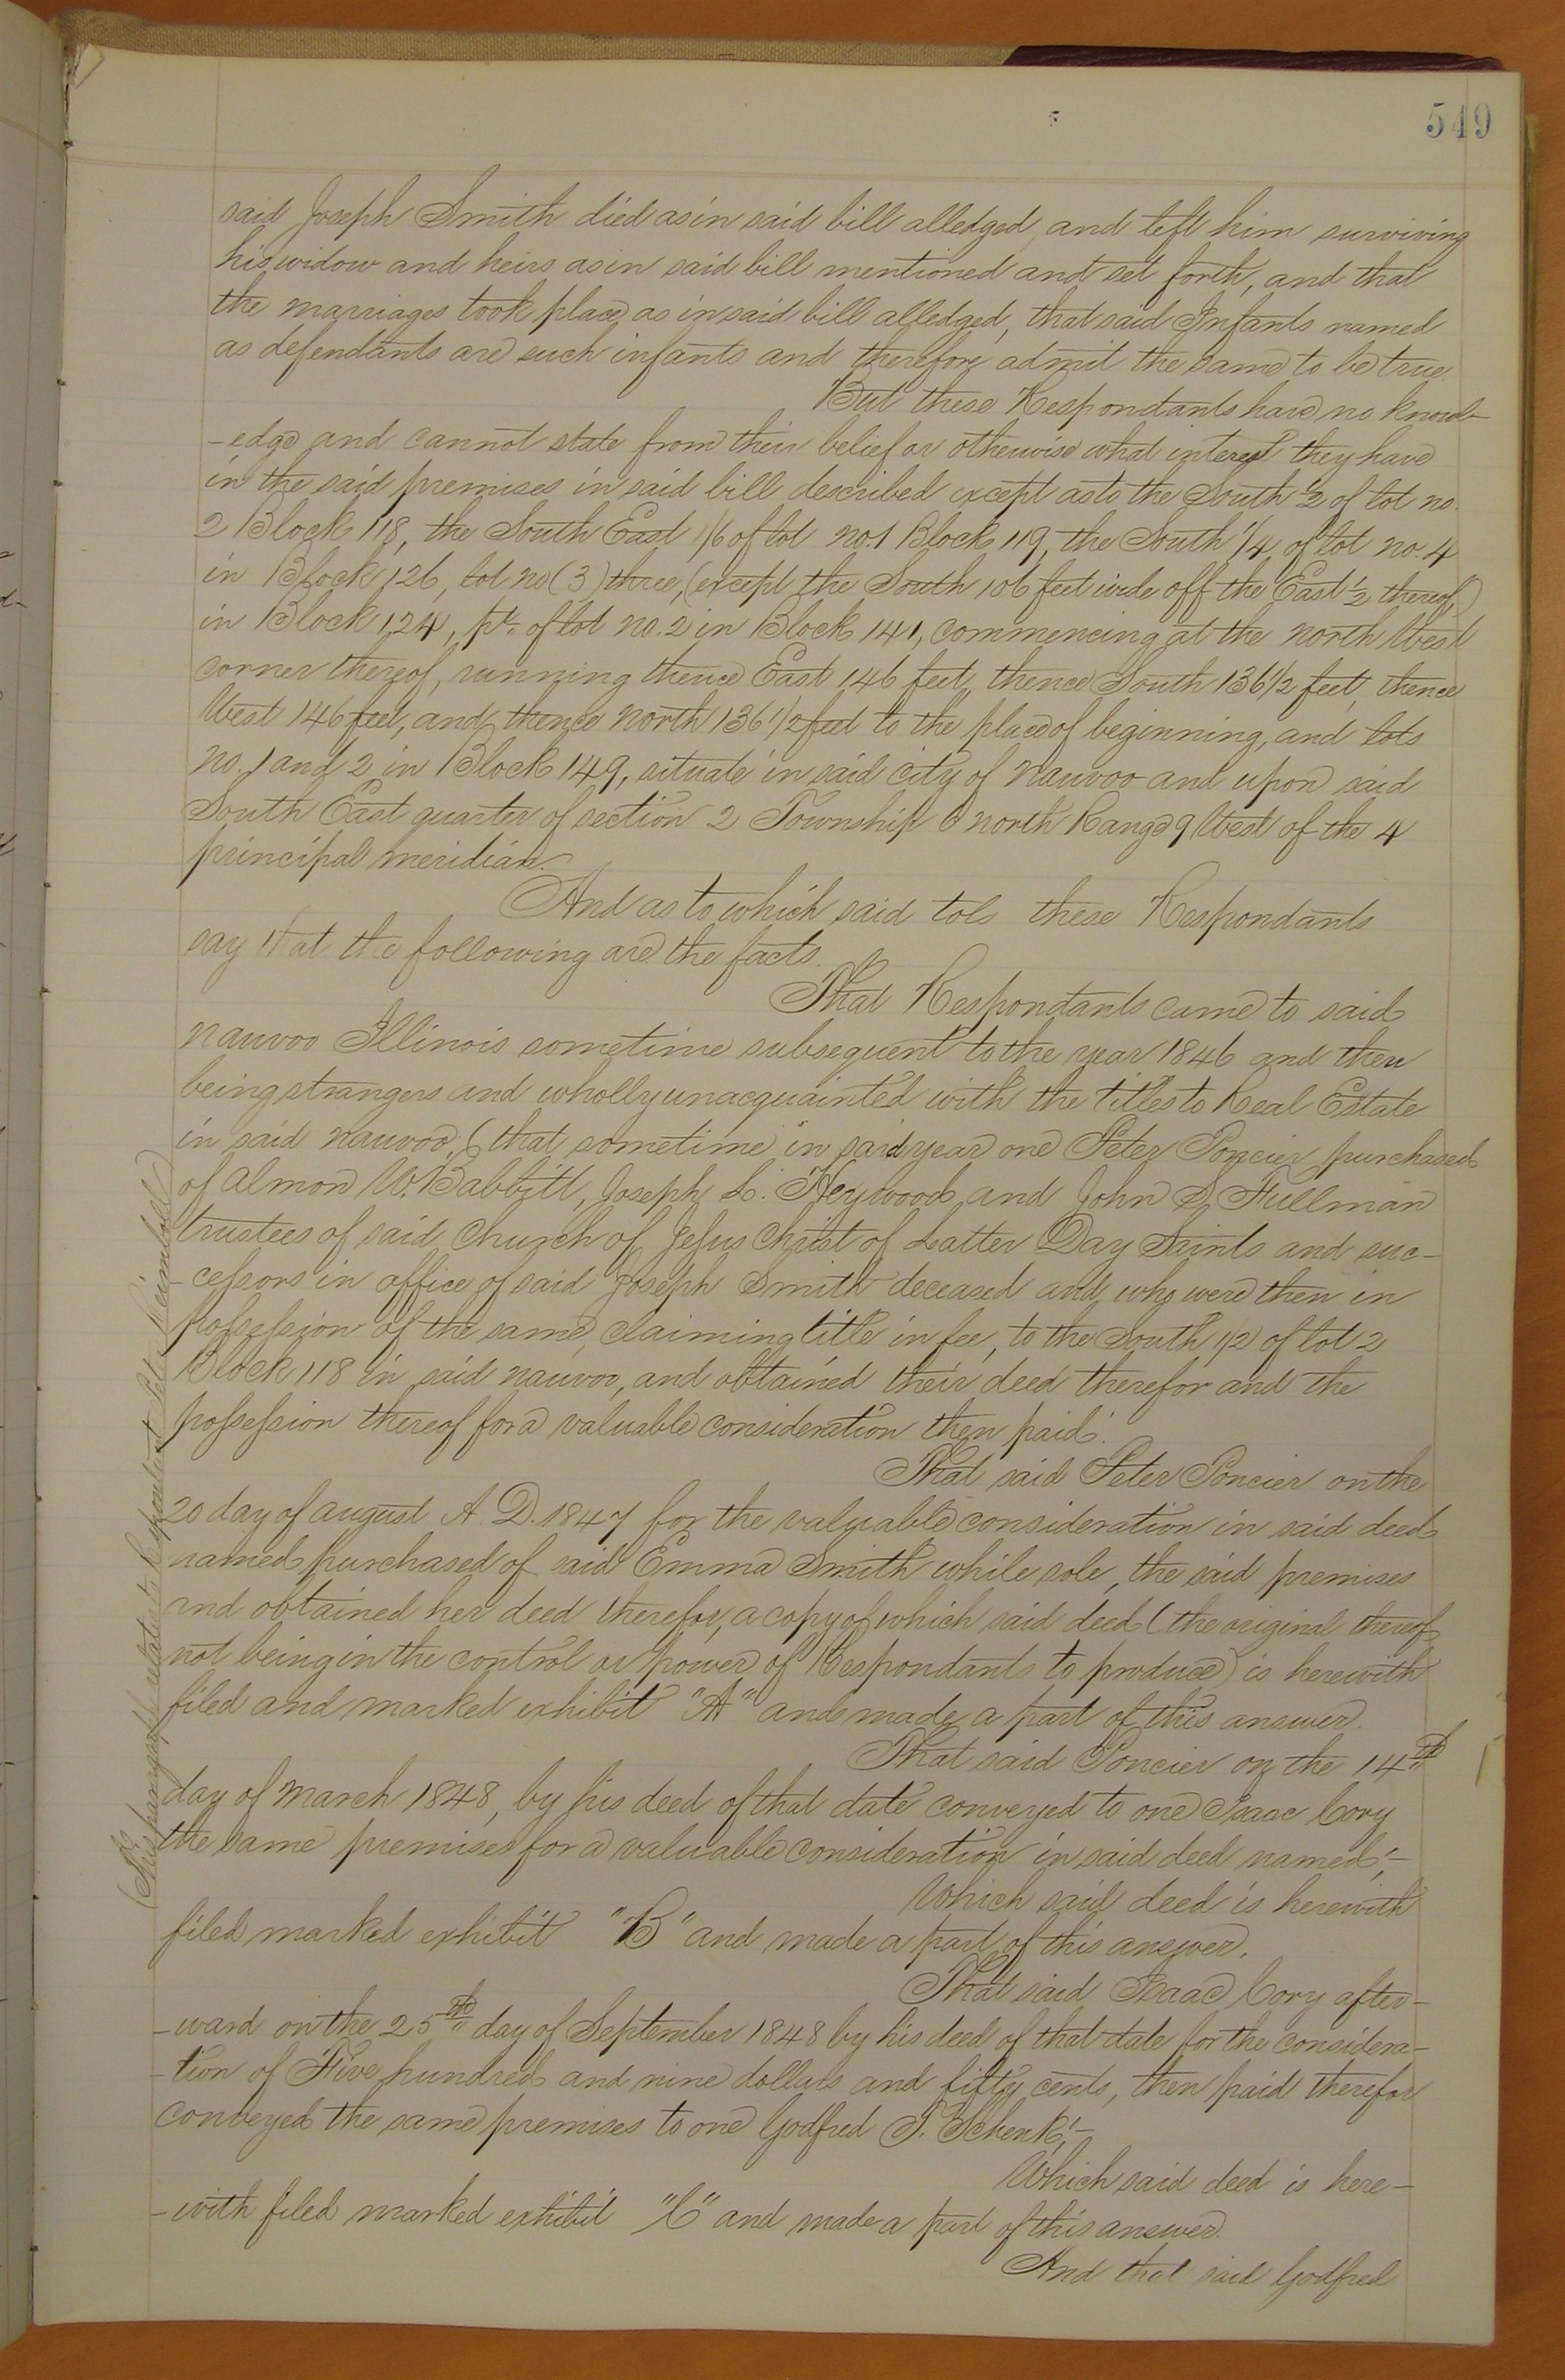 549
said Joseph Smith died as in said bill alledged, and left him surviving
his widow and heirs as in said bill mentioned and set forth, and that
the marriages took place as in said bill alledged, that said Infants named
as defendants are such infants and therefore admit the same to be true.
But these Respondants have no knowl-
-edge and cannot state from their belief or otherwise what interest they have
in the said premises in said bill described except as to the South 1/2 of lot no.
2 Block 118, the South East 1/6 of lot no. 1 Block 119, the South 1/4 of lot no. 4
in Block 126, lot no (3) three, (except the South 106 feet wide off the East 1/2 thereof)
in Block 124, pt. of lot no. 2 in Block 141, commencing at the north West
corner thereof, running thence East 146 feet, thence South 136 1/2 feet, thence
West 146 feet, and thence north 136 1/2 feet to the place of beginning, and lots
no. 1 and 2 in Block 149, situate in said city of Nauvoo and upon said
South East quarter of section 2 Township 6 north Range 9 West of the 4
principal meridian.
And as to which said lots these Respondants
say that the following are the facts.
That Respondants came to said
Nauvoo Illinois sometime subsequent to the year 1846 and then
being strangers and wholly unacquainted with the titles to Real Estate
in said Nauvoo, (that sometime in said year one Peter Poncier purchased
of Almon W. Babbitt, Joseph L. Heywood and John S. Fullman
trustees of said Church of Jesus Christ of Latter Day Saints and suc-
-cessors in office of said Joseph Smith deceased and who were then in
possession of the same, claiming title in fee, to the South 1/2 of lot 2
Block 118 in said Nauvoo, and obtained their deed therefor and the
possession thereof for a valuable consideration then paid.
That said Peter Poncier on the
20 day of August A.D. 1847 for the valuable consideration in said deed
named purchased of said Emma Smith while sole, the said premises
and obtained her deed therefor, a copy of which said deed (the original thereof
not being in the control or power of Respondants to produce) is herewith
filed and marked exhibit "A" and made a part of this answer.
That said Poncier on the 14th
day of March 1848, by his deed of that date conveyed to one Isaac Cory
the same premises for a valuable consideration in said deed named;-
Which said deed is herewith
filed marked exhibit "B" and made a part of this answer.
That said Isaac Cory after-
-ward on the 25th day of September 1848 by his deed of that date for the considera-
-tion of Five hundred and nine dollars and fifty cents, then paid therefor
conveyed the same premises to one Godfred T. Schenk;-
Which said deed is here-
-with filed marked exhibit "C" and made a part of this answer.
And that said Godfred
(This paragraph relates to Respondant Kimball)